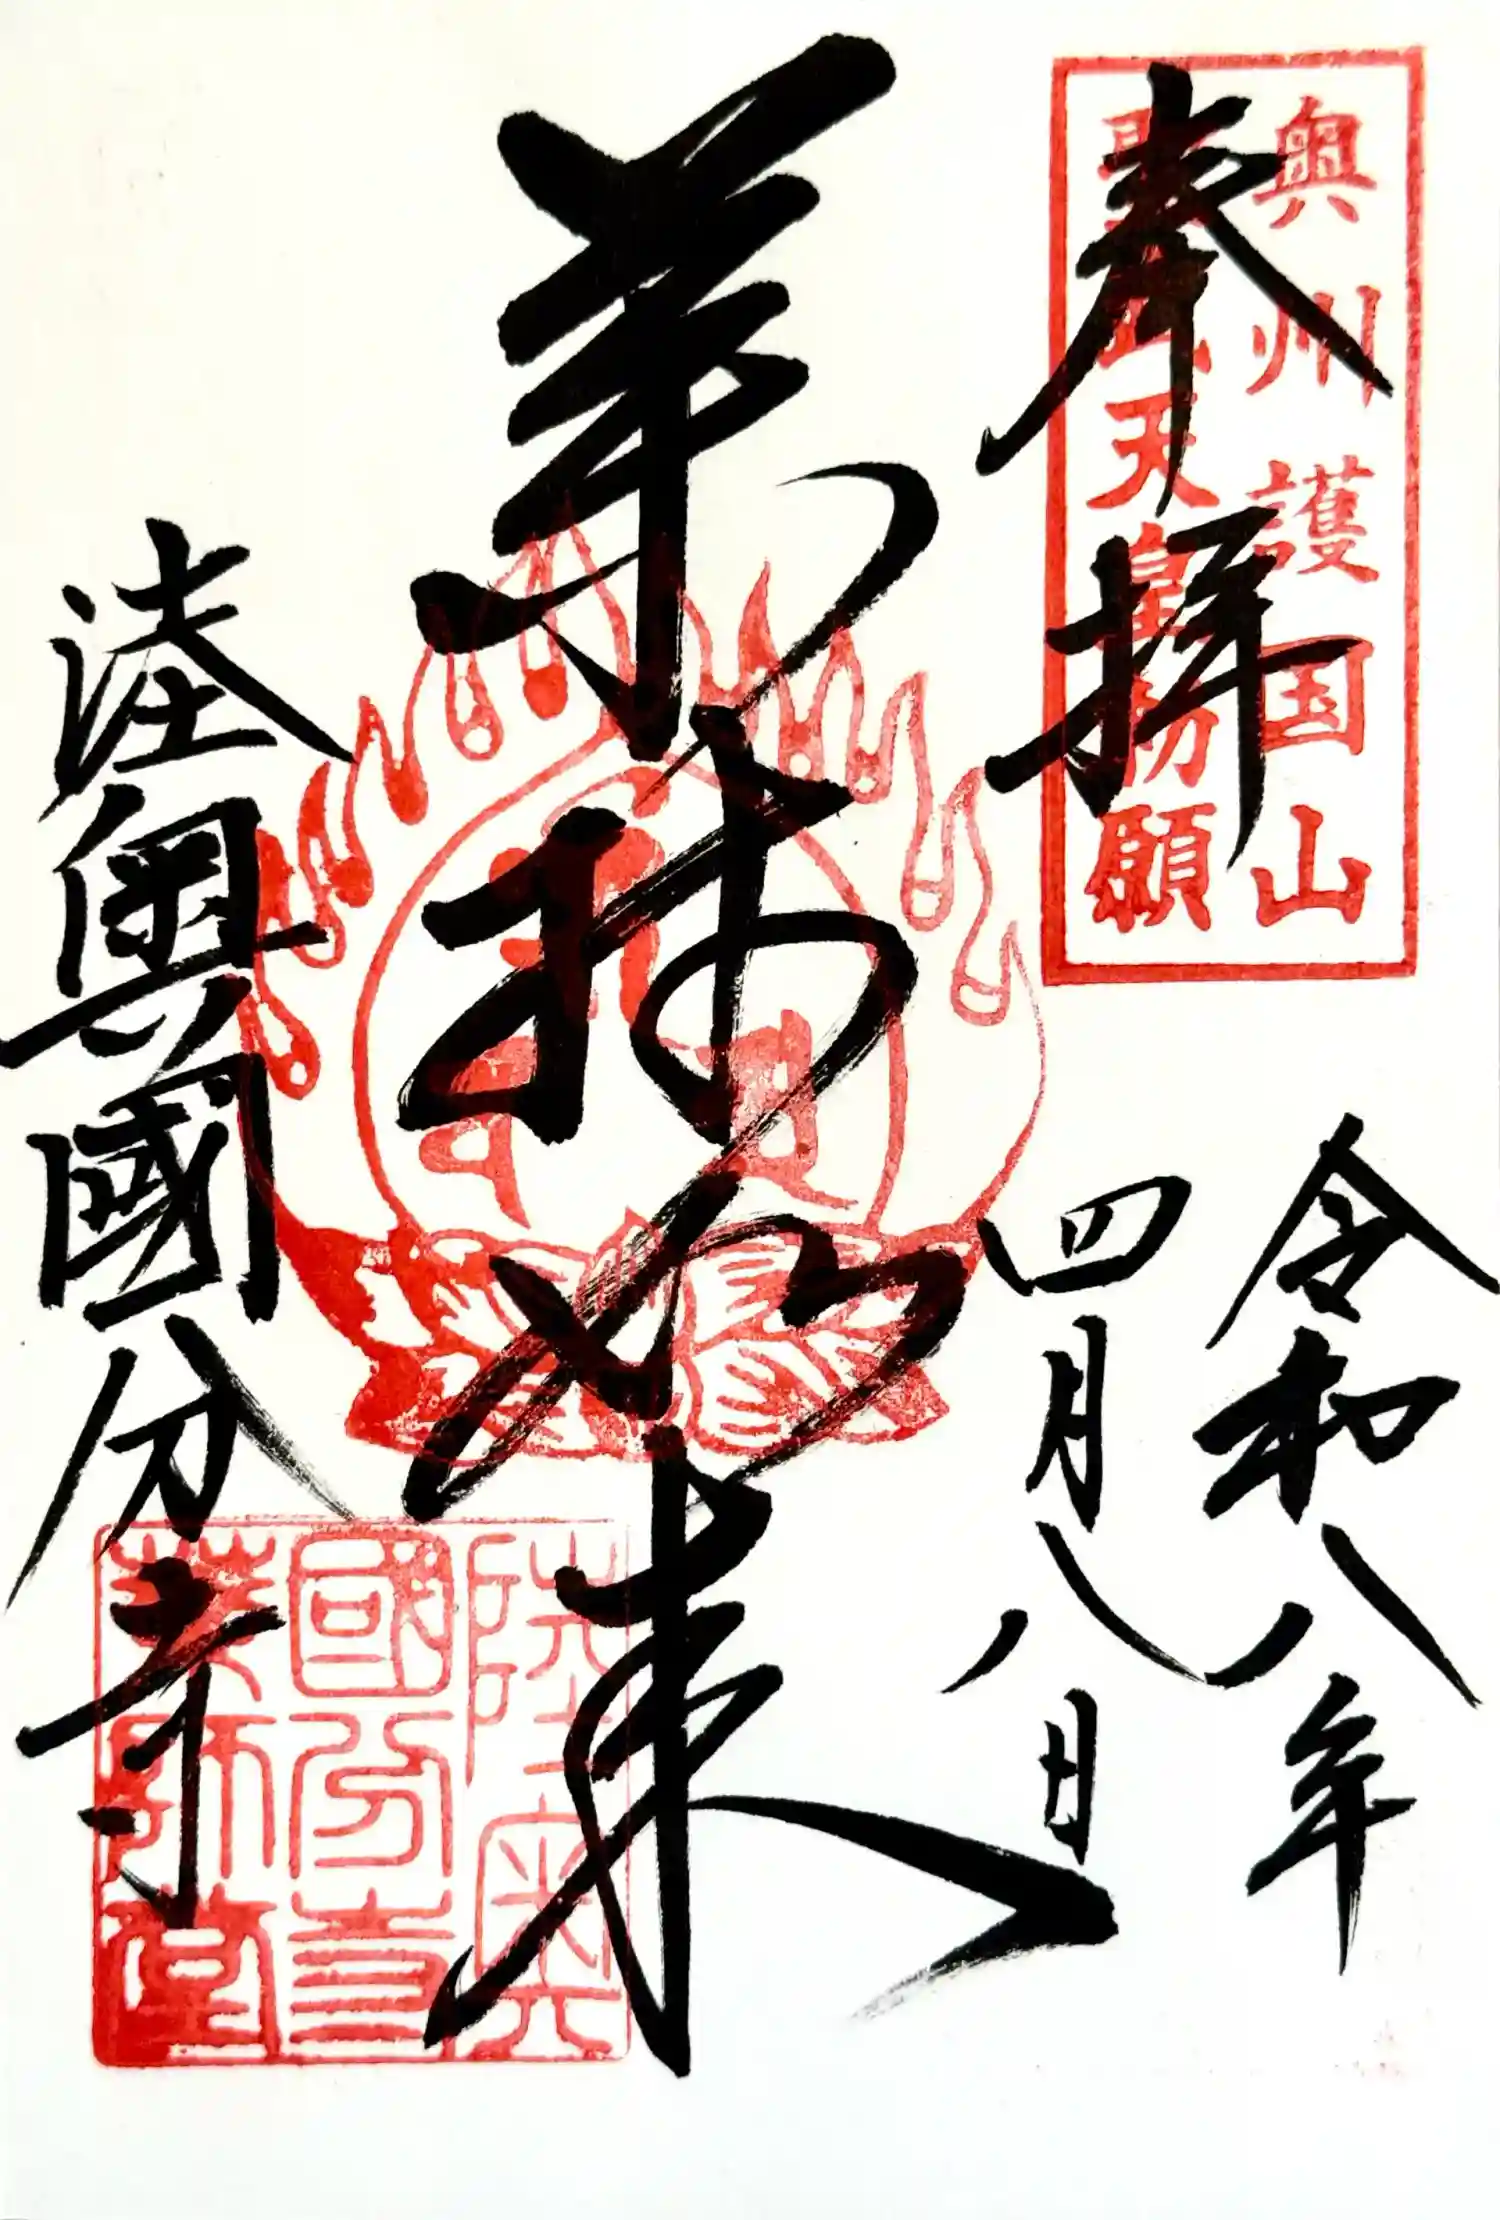 奥州護国山
聖武天皇勅願
奉拝
令和八年
四月八日
薬師如来
陸奥國分寺
陸奥
國分寺
薬師堂